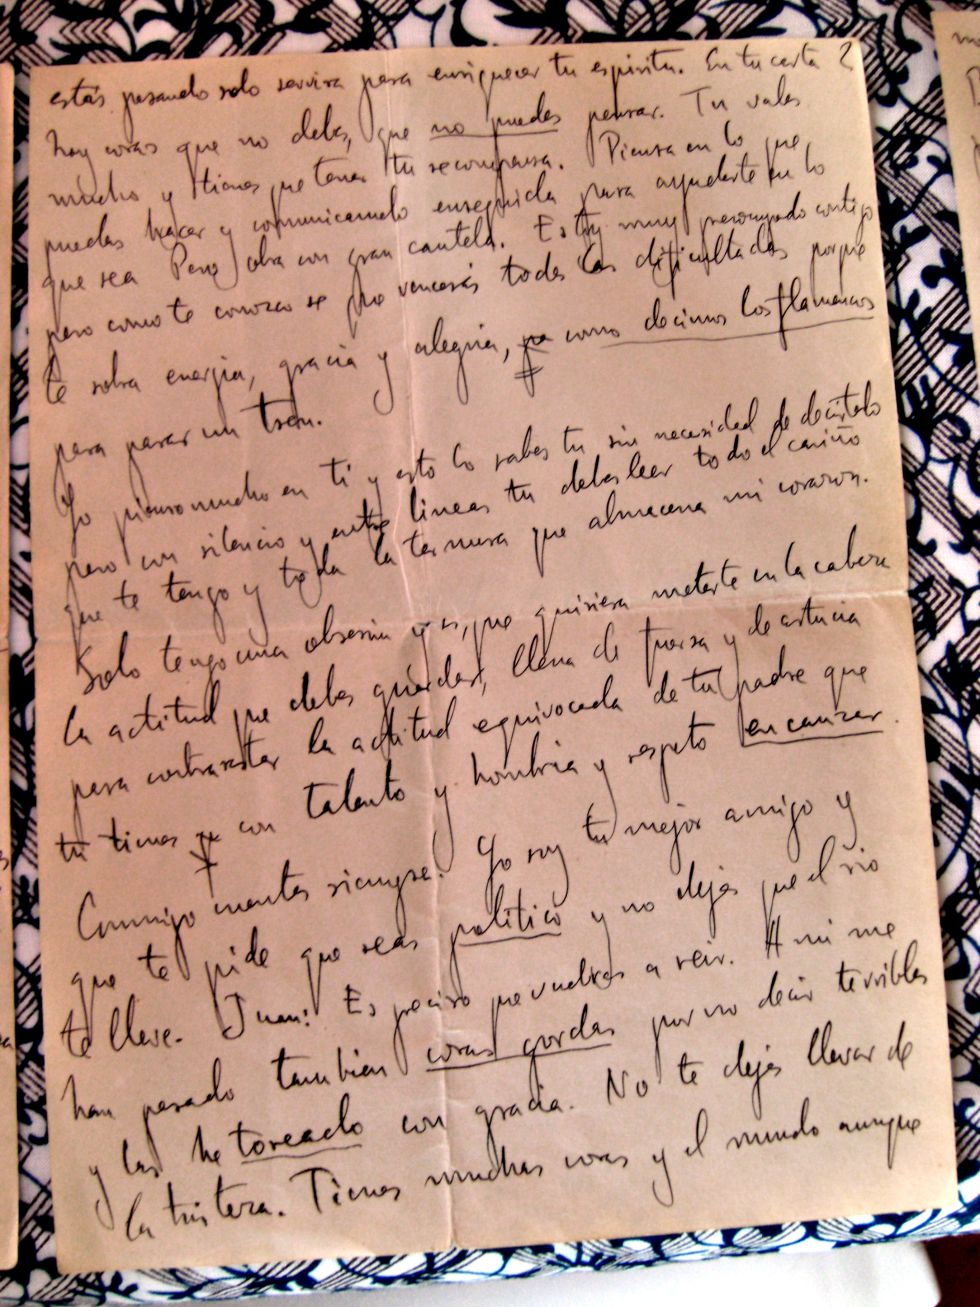 estás pasando solo servira para enriquecer tu espiritu. En tu carta 2
hay cosas que no debes, que no puedes pensar. Tu vales
mucho y tienes que tener tu recompensa. Piensa en lo que
puedas hacer y comunicamelo enseguida para ayudarte en lo
que sea Pero obra con gran cautela. Estoy muy preocupado contigo
pero como te conozco se que vencerás todas las dificultades porque
te sobra energia, gracia y alegria, como decimos los flamencos
para parar un tren.
Yo pienso mucho en ti y esto lo sabes tu sin necesidad de decirtelo
pero con silencio y entre lineas tu debes leer todo el cariño
que te tengo y toda la ternura que almacena mi corazon.
Solo tengo una obsesion y es, que quisiera meterte en la cabeza
la actitud que debes guardar, llena de fuerza y de astucia
para contrarestar la actitud equivocada de tu padre que
tu tienes con talento y hombria y respeto encauzar.
Conmigo cuentas siempre. Yo soy tu mejor amigo y
que te pide que seas politico y no dejes que el rio
te lleve. Juan: Es preciso que vuelvas a reir. A mi me
han pasado tambien cosas gordas por no decir terribles
y las he toreado con gracia. No te dejes llevar de
la tristeza. Tienes muchas cosas y el mundo aunque